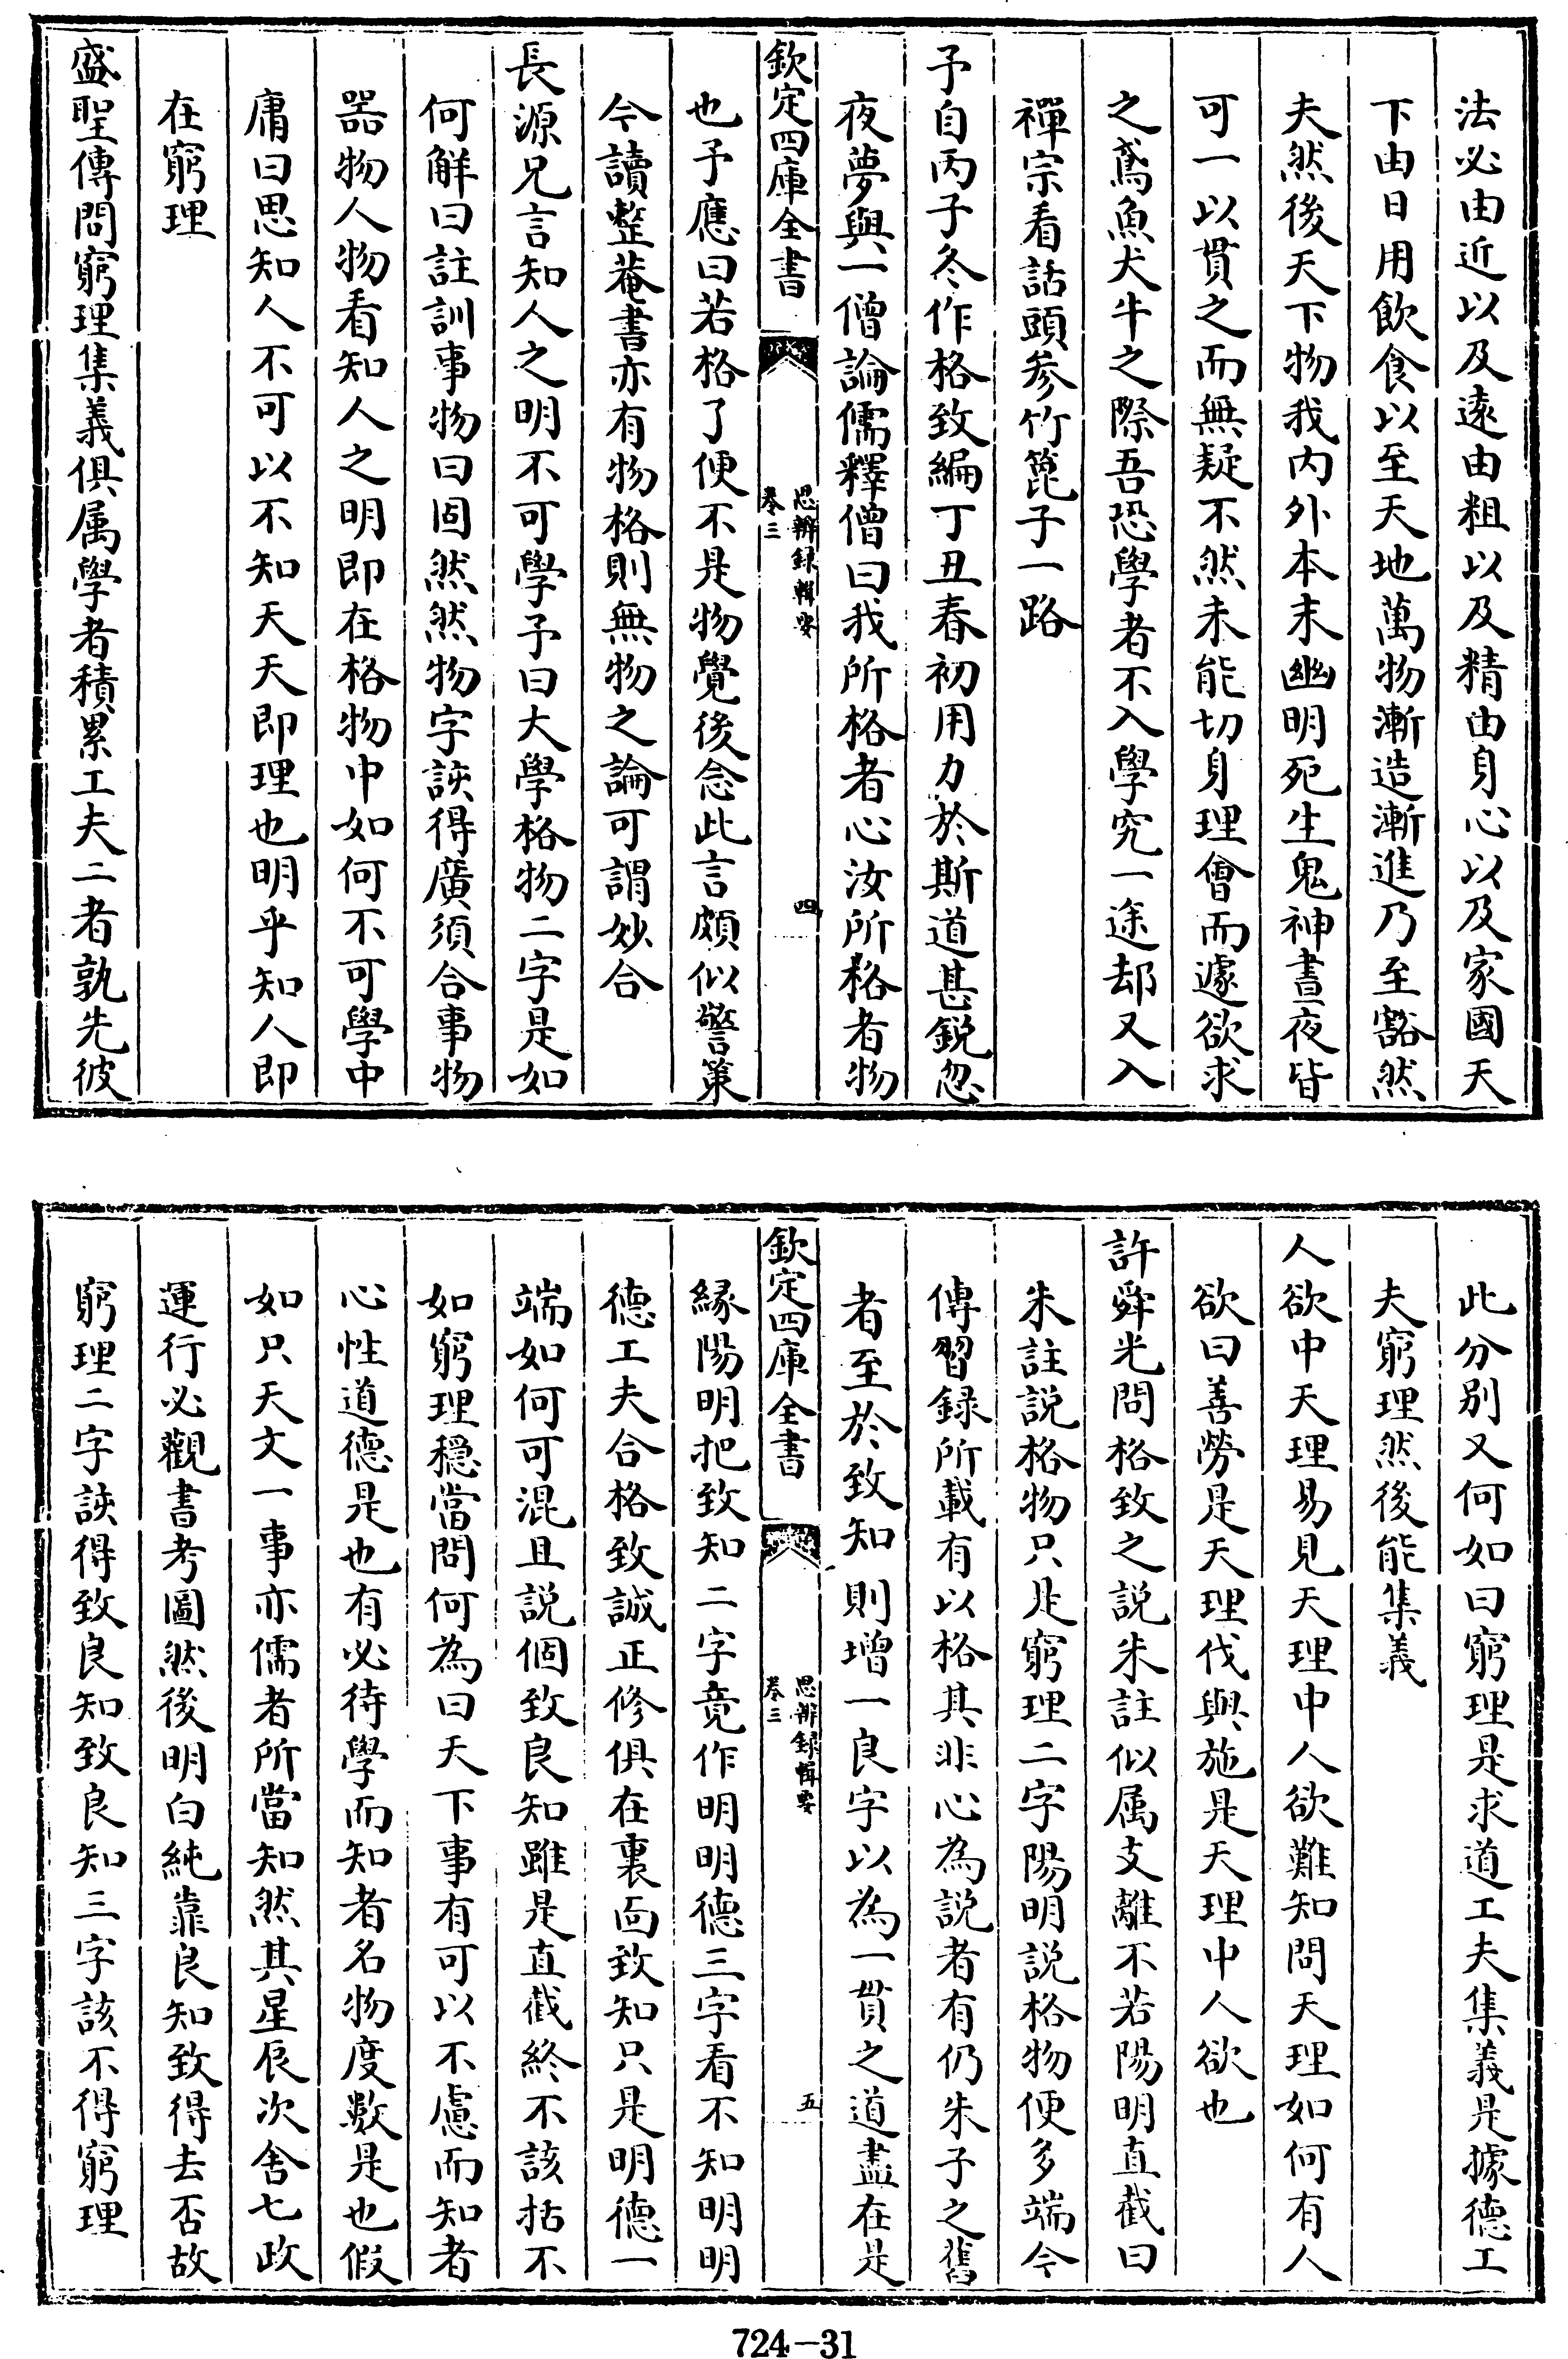 法必由近以及遠由粗以及精由身心以及家國天
下由日用飲食以至天地萬物漸造漸進乃至豁然
夫然後天下物我內外本末幽明死生鬼神晝夜皆
可一以貫之而無疑不然未能切身理會而遽欲求
之鳶魚犬牛之際吾恐學者不入學究一途却又入
禪宗看話頭參竹篦子一路
予自丙子冬作格致編丁丑春初用力於斯道甚銳忽
夜夢與一僧論儒釋僧曰我所格者心汝所格者物
欽定四庫全書
思辨録輯要
卷三
四
也予應曰若格了便不是物覺後念此言頗似警策
今讀整菴書亦有物格則無物之論可謂妙合
長源兄言知人之明不可學予曰大學格物二字是如
何解曰註訓事物曰固然然物字該得廣須合事物
器物人物看知人之明即在格物中如何不可學中
庸曰思知人不可以不知天天即理也明乎知人即
在窮理
盛聖傳問窮理集義俱属學者積累工夫二者孰先彼
此分別又何如曰窮理是求道工夫集義是據德工
夫窮理然後能集義
人欲中天理易見天理中人欲難知問天理如何有人
欲曰善勞是天理伐與施是天理中人欲也
許舜光問格致之説朱註似属支離不若陽明直截曰
朱註説格物只是窮理二字陽明説格物便多端今
傳習録所載有以格其非心為説者有仍朱子之舊
者至於致知則增一良字以為一貫之道盡在是
欽定四庫全書
思辨録輯要
卷三
五
縁陽明把致知二字竟作明明德三字看不知明明
德工夫合格致誠正修俱在裏面致知只是明德一
端如何可混且説個致良知雖是直截終不該括不
如窮理穩當問何為曰天下事有可以不慮而知者
心性道德是也有必待學而知者名物度數是也假
如只天文一事亦儒者所當知然其星辰次舍七政
運行必觀書考圖然後明白純靠良知致得去否故
窮理二字該得致良知致良知三字該不得窮理
724-31